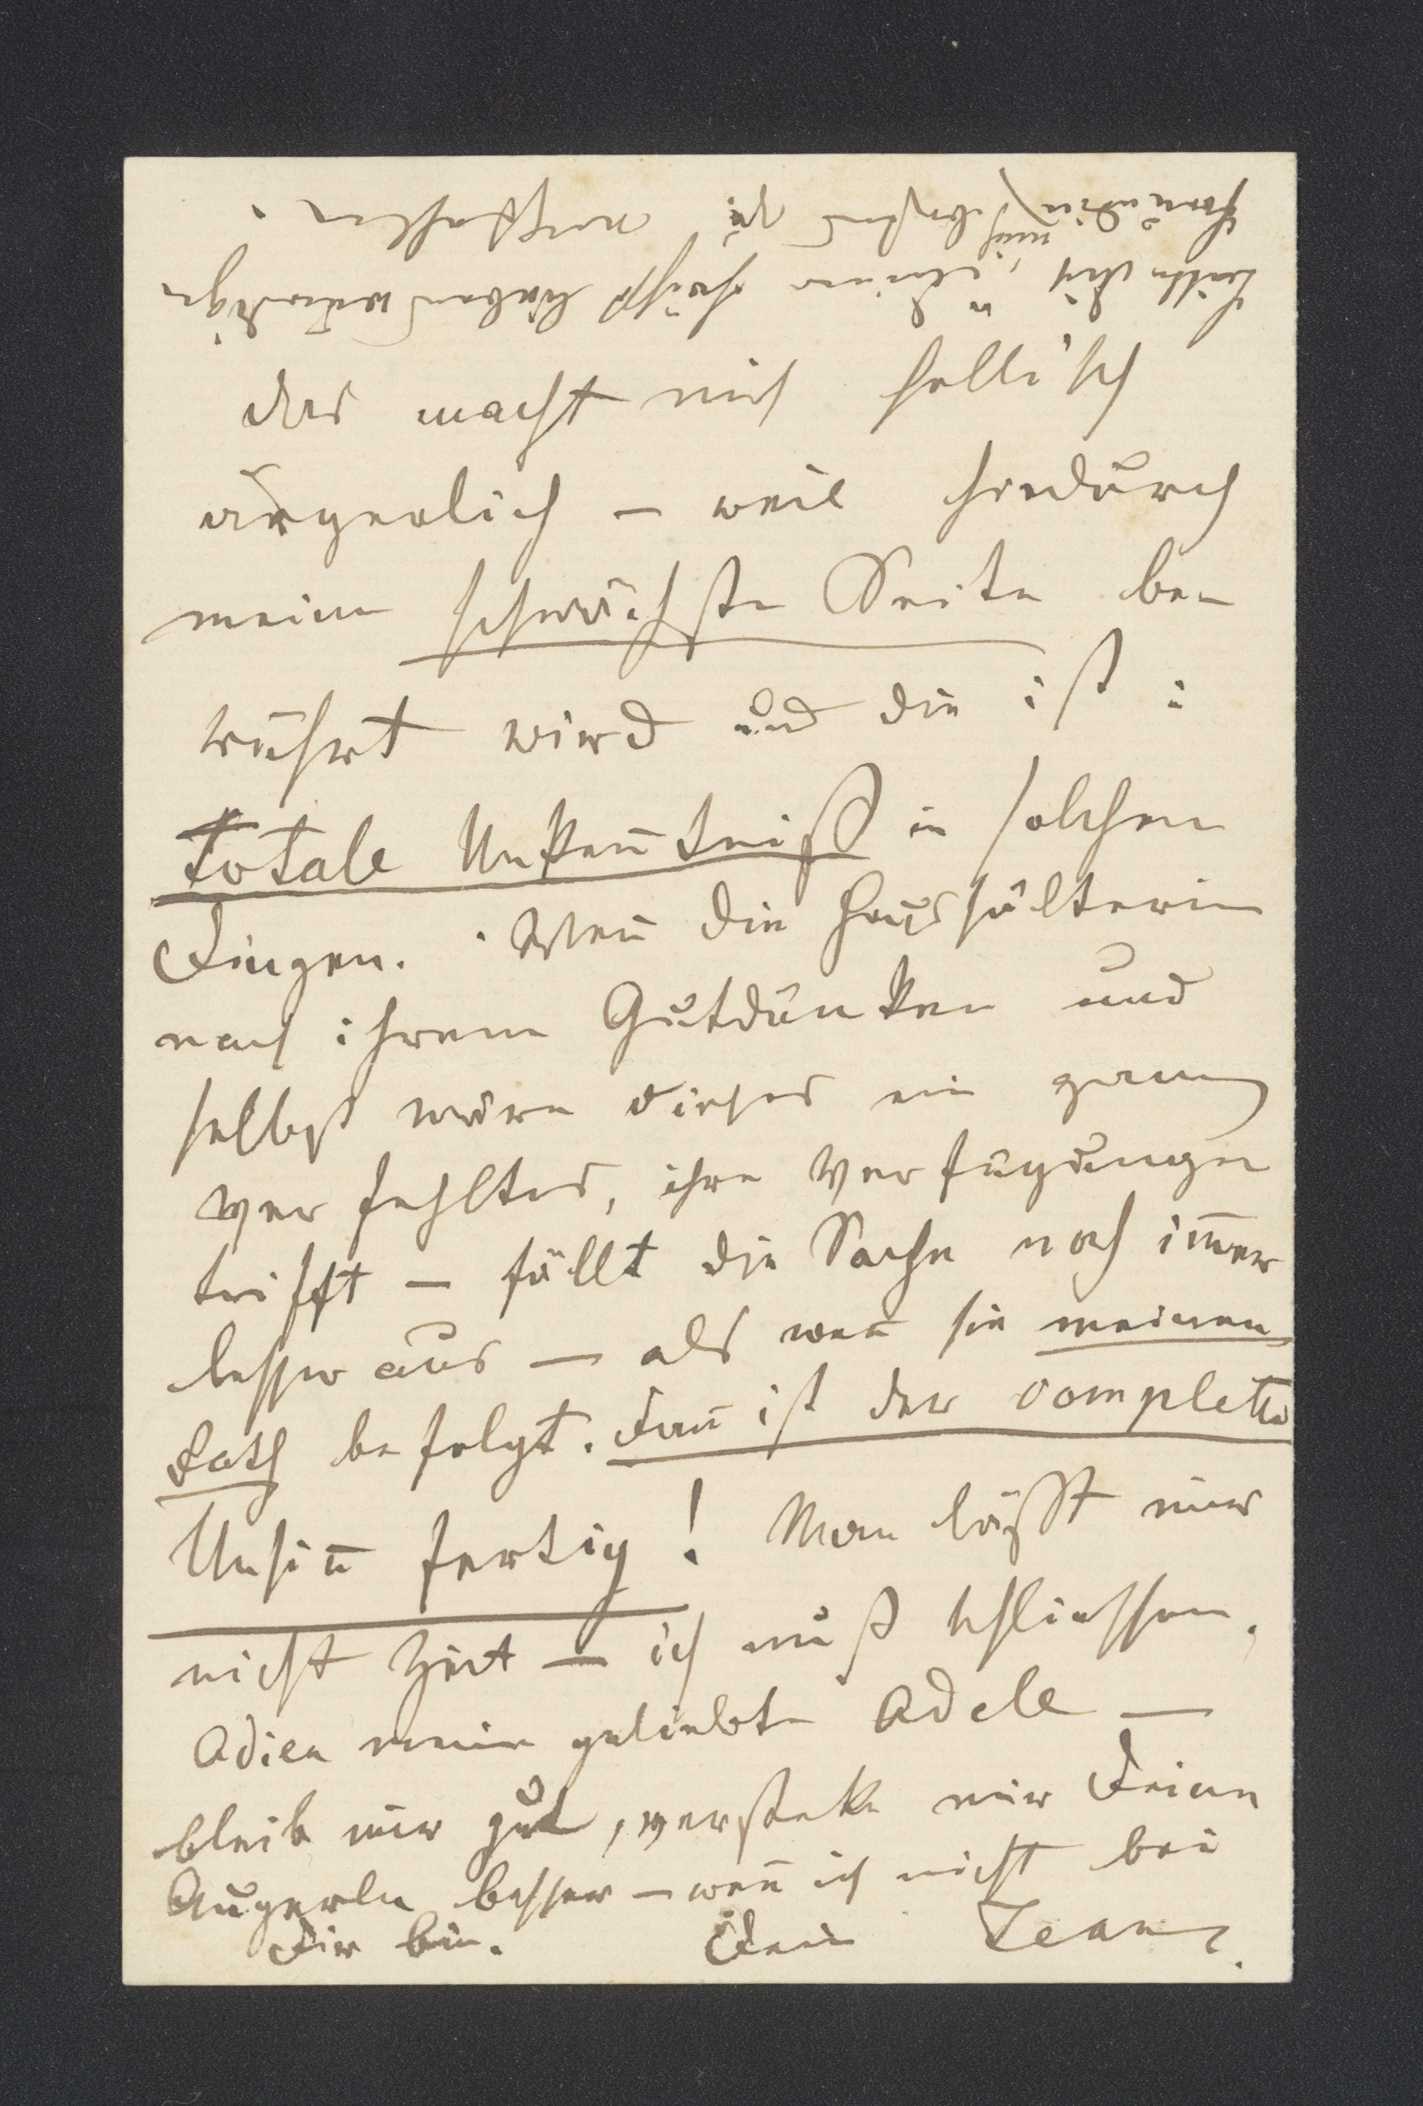 das macht mich höllisch
ärgerlich – weil hiedurch
meine schwächste Seite be-
rührt wird und die ist:
totale Unkenntniß in solchen
Dingen. Wenn die Haushälterin
nach ihrem Gutdünken und
selbst wäre dieses ein ganz
verfehltes, ihre Verfügungen
trifft – fällt die Sache noch immer
besser aus – als wenn sie meinen
Rath befolgt. Dann ist der complette
Unsinn fertig! Man läßt mir
nicht Zeit – ich muß schliessen.
Adieu meine geliebte Adele –
bleib mir gut, versteke mir Deine
Äugerln besser – wenn ich nicht bei
Dir bin. Dein Jean.
bitte Dich, Deiner liebenswürdigen
Freundin mich bestens zu empfehlen.